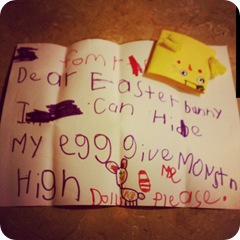 fomr
Dear Easter bunny
I Can Hide
My egg give MONStn
High Doll Me Please.